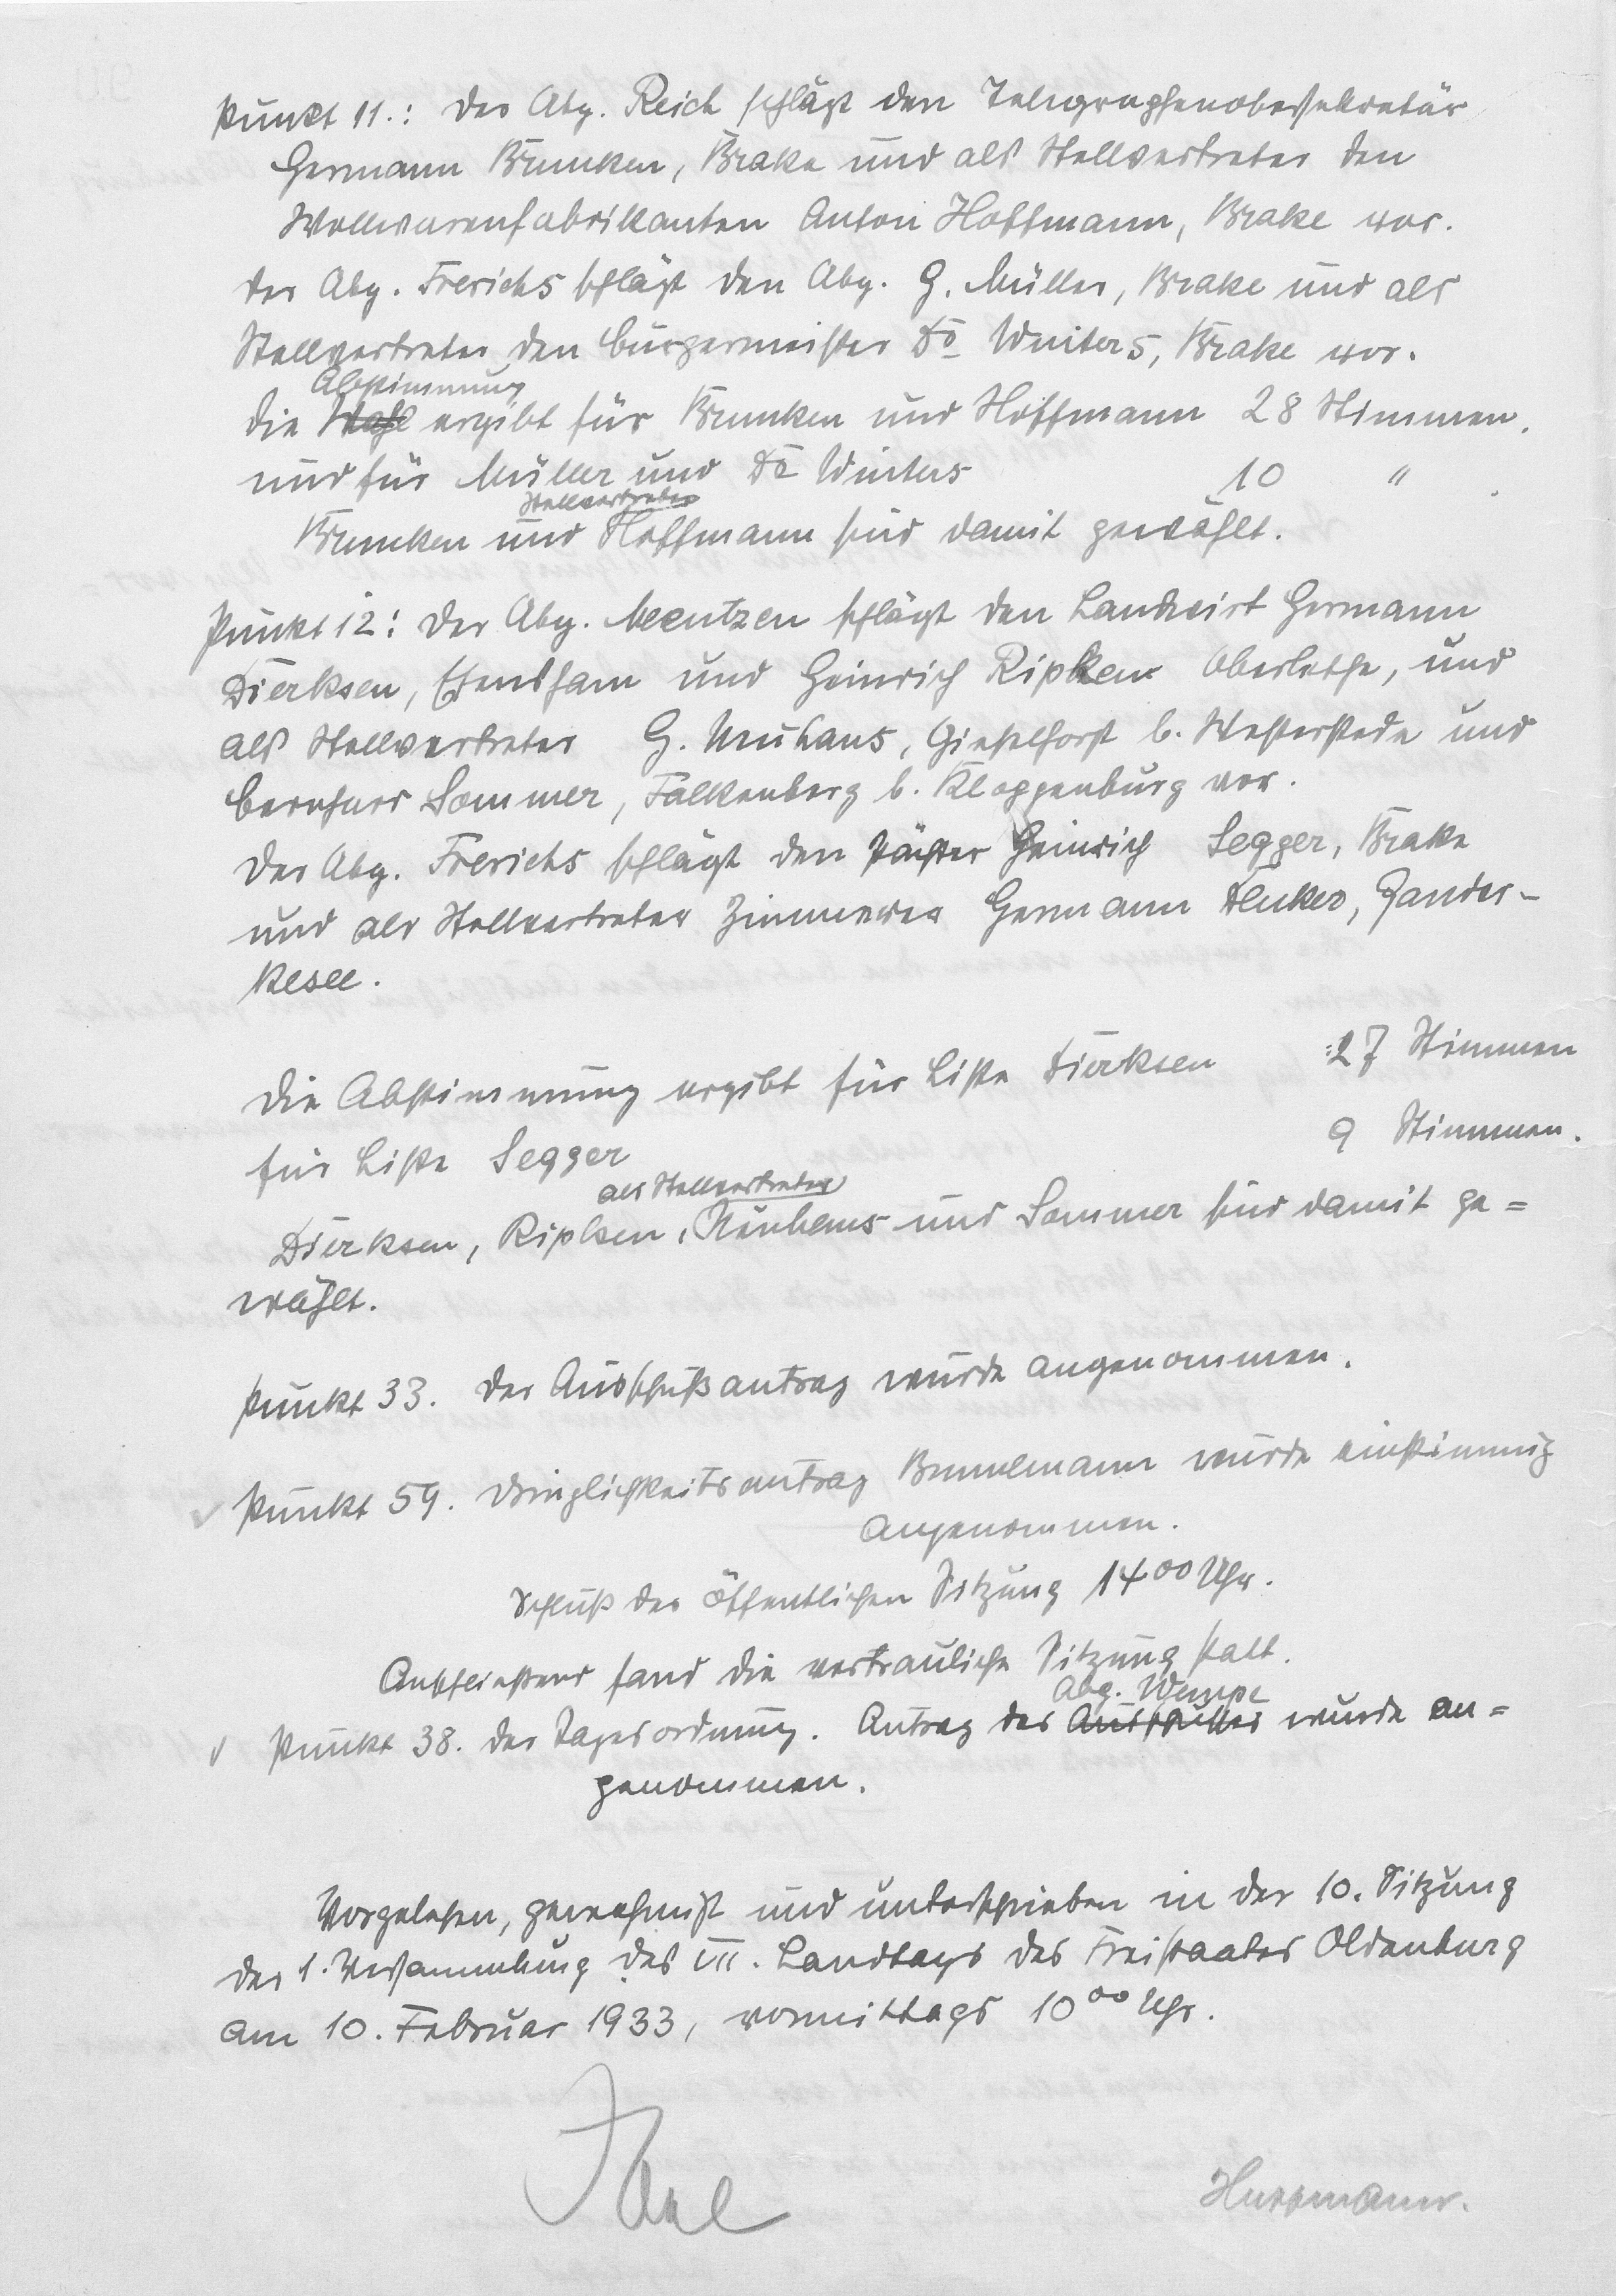 Punkt 11.: Der Abg. Reich schlägt den Telegraphenobersekretär
Hermann Brunken, Brake und als Stellvertreter den
Wollwarenfabrikanten Anton Hoffmann, Brake vor.
Der Abg. Frerichs schlägt den Abg. H. Müller, Brake und als
Stellvertreter den Bürgermeister Dr Winters, Brake vor.
Abstimmung
Die Wahl ergibt für Brunken und Hoffmann 28 Stimmen.
und für Müller und Dr Winters 10 "
Stellvertreter
Brunken und Hoffmann sind damit gewählt.
Punkt 12: Der Abg. Mentzen schlägt den Landwirt Hermann
Dierksen, Esensham und Heinrich Ripken Oberlethe, und
als Stellvertreter H. Neuhaus, Gießelhorst b. Westerstede und
Bernhard Sommer, Falkenberg b. Kloppenburg vor.
Der Abg. Frerichs schlägt den Pächter Heinrich Segger, Brake
und als Stellvertreter Zimmerer Hermann, Gander-
kesee.
Die Abstimmung ergibt für Liste Dierksen 27 Stimmen
für Liste Segger 9 Stimmen.
als Stellvertreter
Dierksen, Ripken, Neuhaus und Sommer sind damit ge=
wählt.
Punkt 33. Der Ausschußantrag wurde angenommen.
Punkt 59. Dringlichkeitsantrag wurde einstimmig
angenommen.
Schluß der öffentlichen Sitzung 14⁰⁰ Uhr.
Anschließend fand die vertrauliche Sitzung statt.
Abg. Wempe
Punkt 38. der Tagesordnung. Antrag des Ausschusses wurde an=
genommen.
Vorgelesen, genehmigt und unterschrieben in der 10. Sitzung
der 1. Versammlung des VII. Landtags des Freistaates Oldenburg
am 10. Februar 1933, vormittags 10⁰⁰ Uhr.
Joel